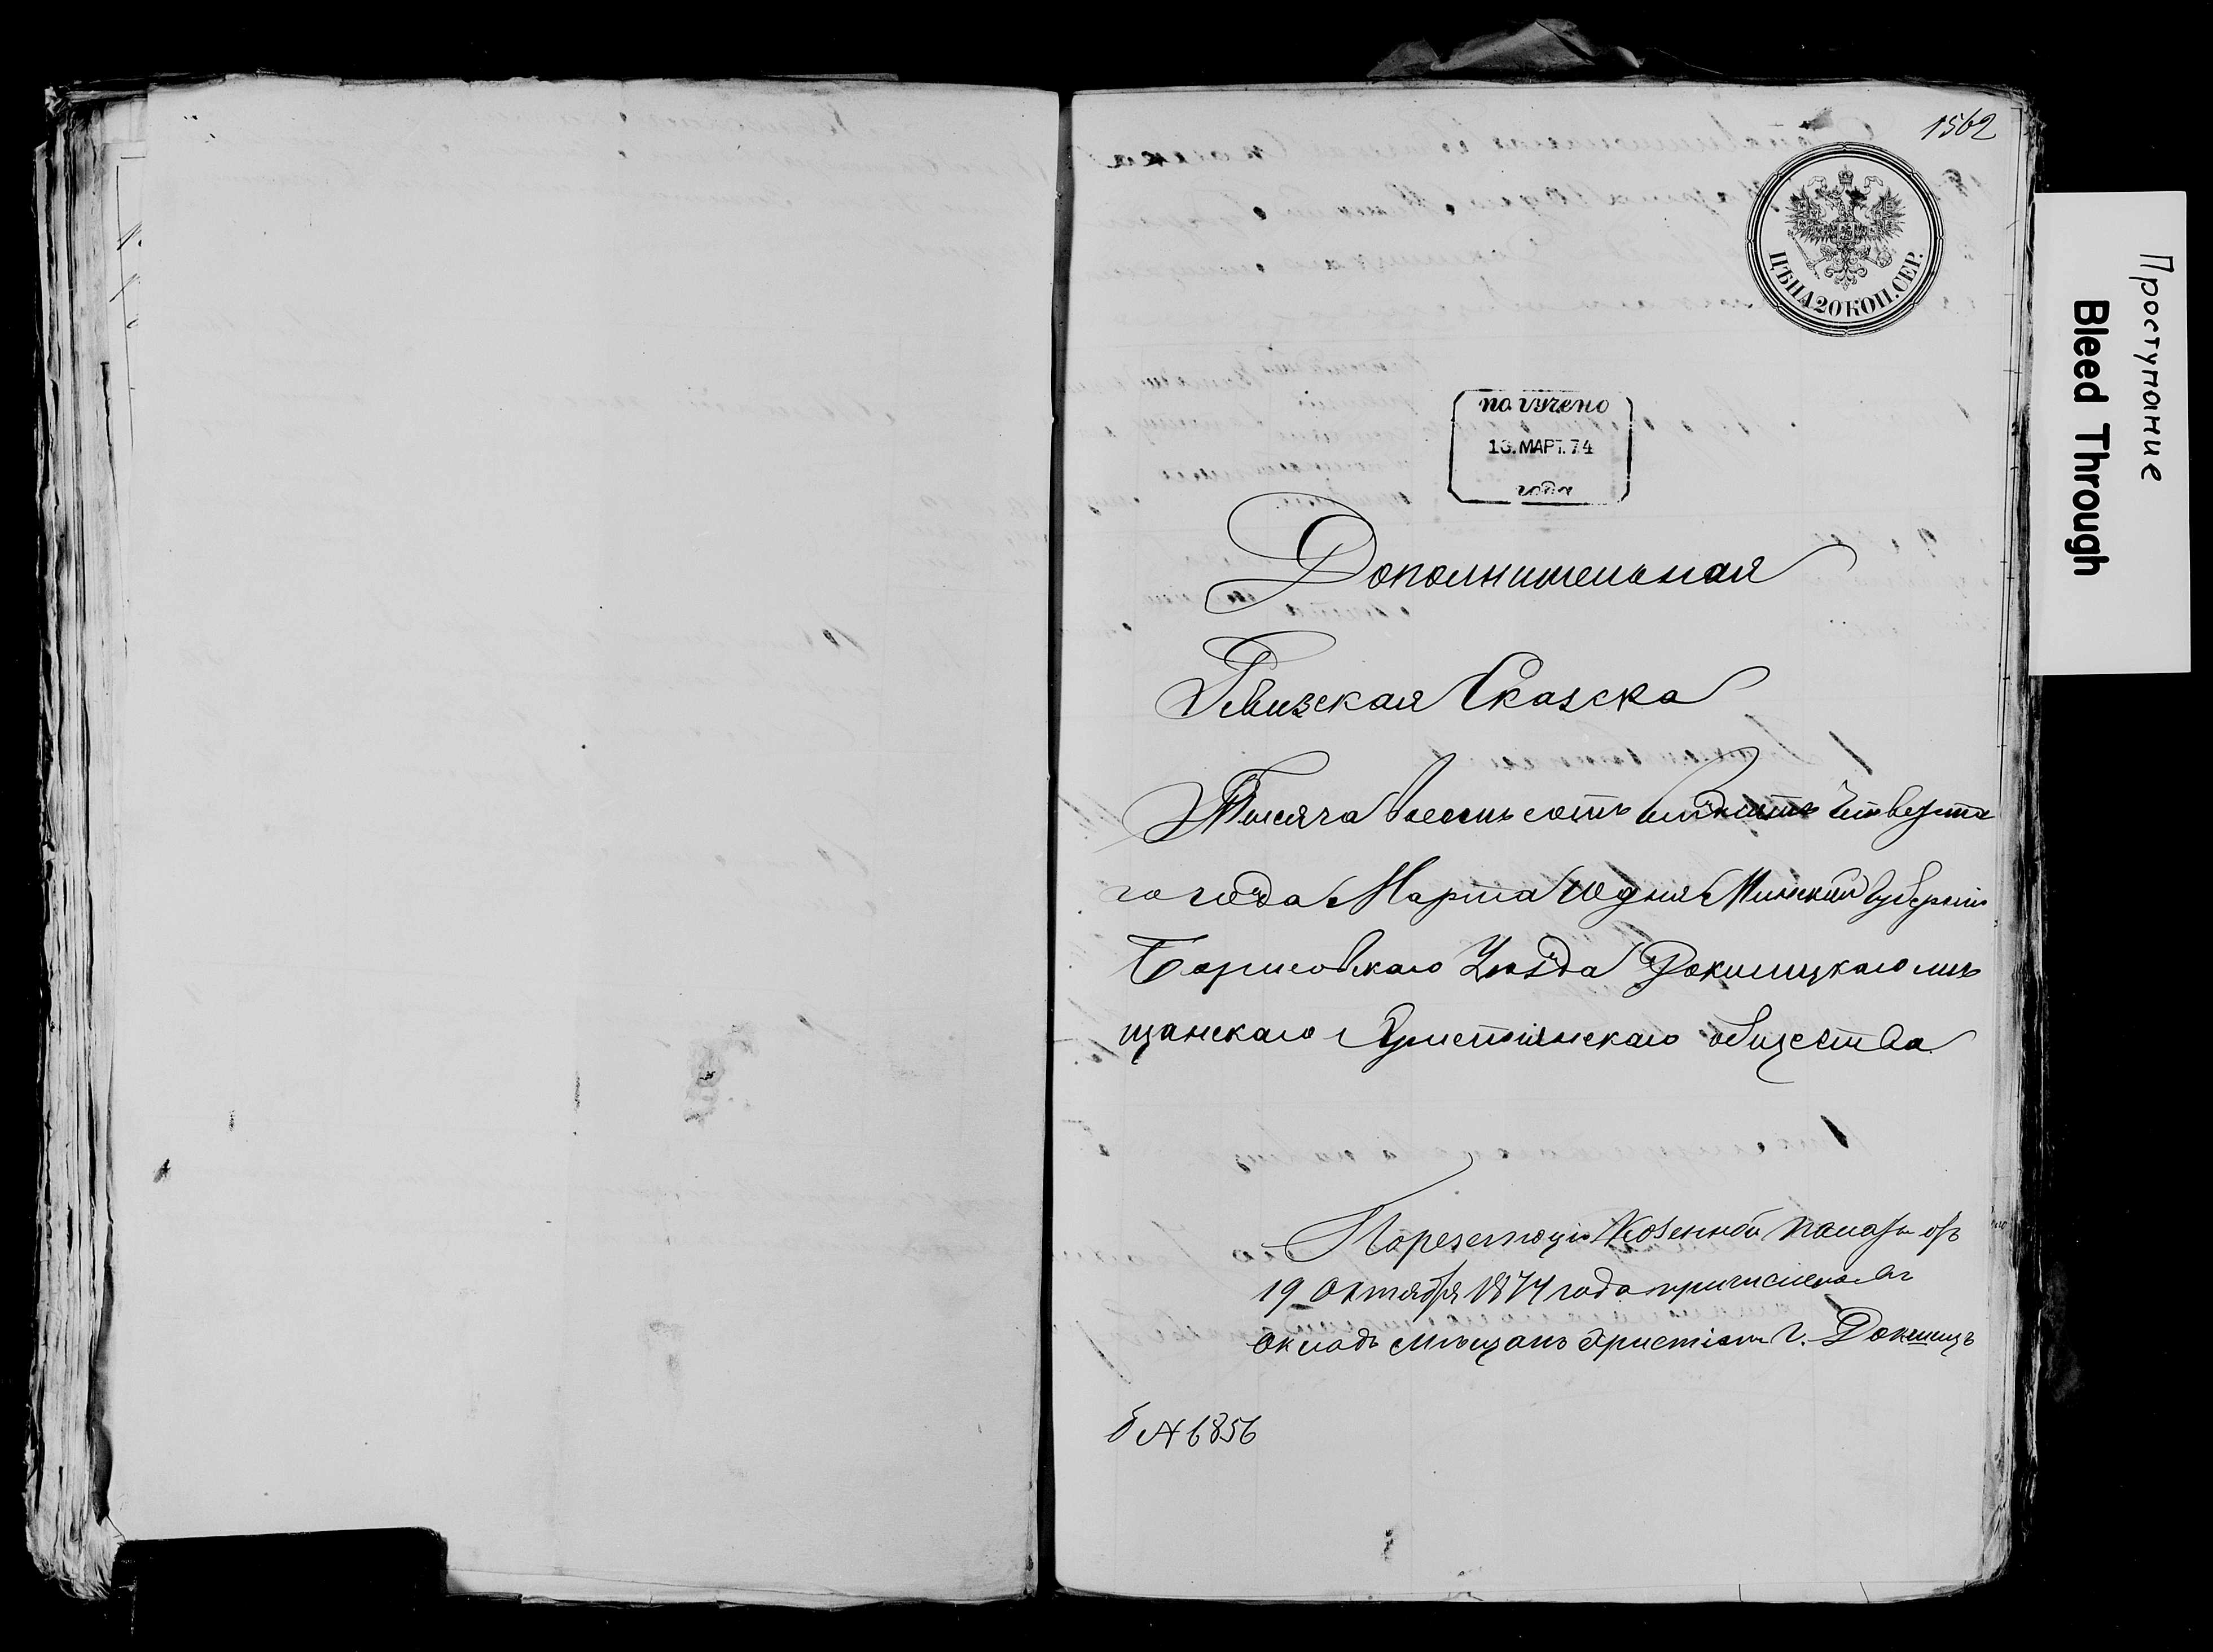 1562
ЦѢНА 20 КОП. СЕР.
получено
10. МАРТ. 74
года
Дополнительная
Ревизская Сказска
Тысяча восемь сотъ семдесятъ четверта
го года Марта 10 дня Минской Губернiи
Борисовскаго Уѣзда Докшицкаго мѣ
щанскаго Христiянскаго общества
По резолюцiи Казенной палаты отъ
19 Октября 1874 года причислено въ
окладъ мѣщанъ христiанъ г. Докшицъ
6856
Проступание
Bleed Through